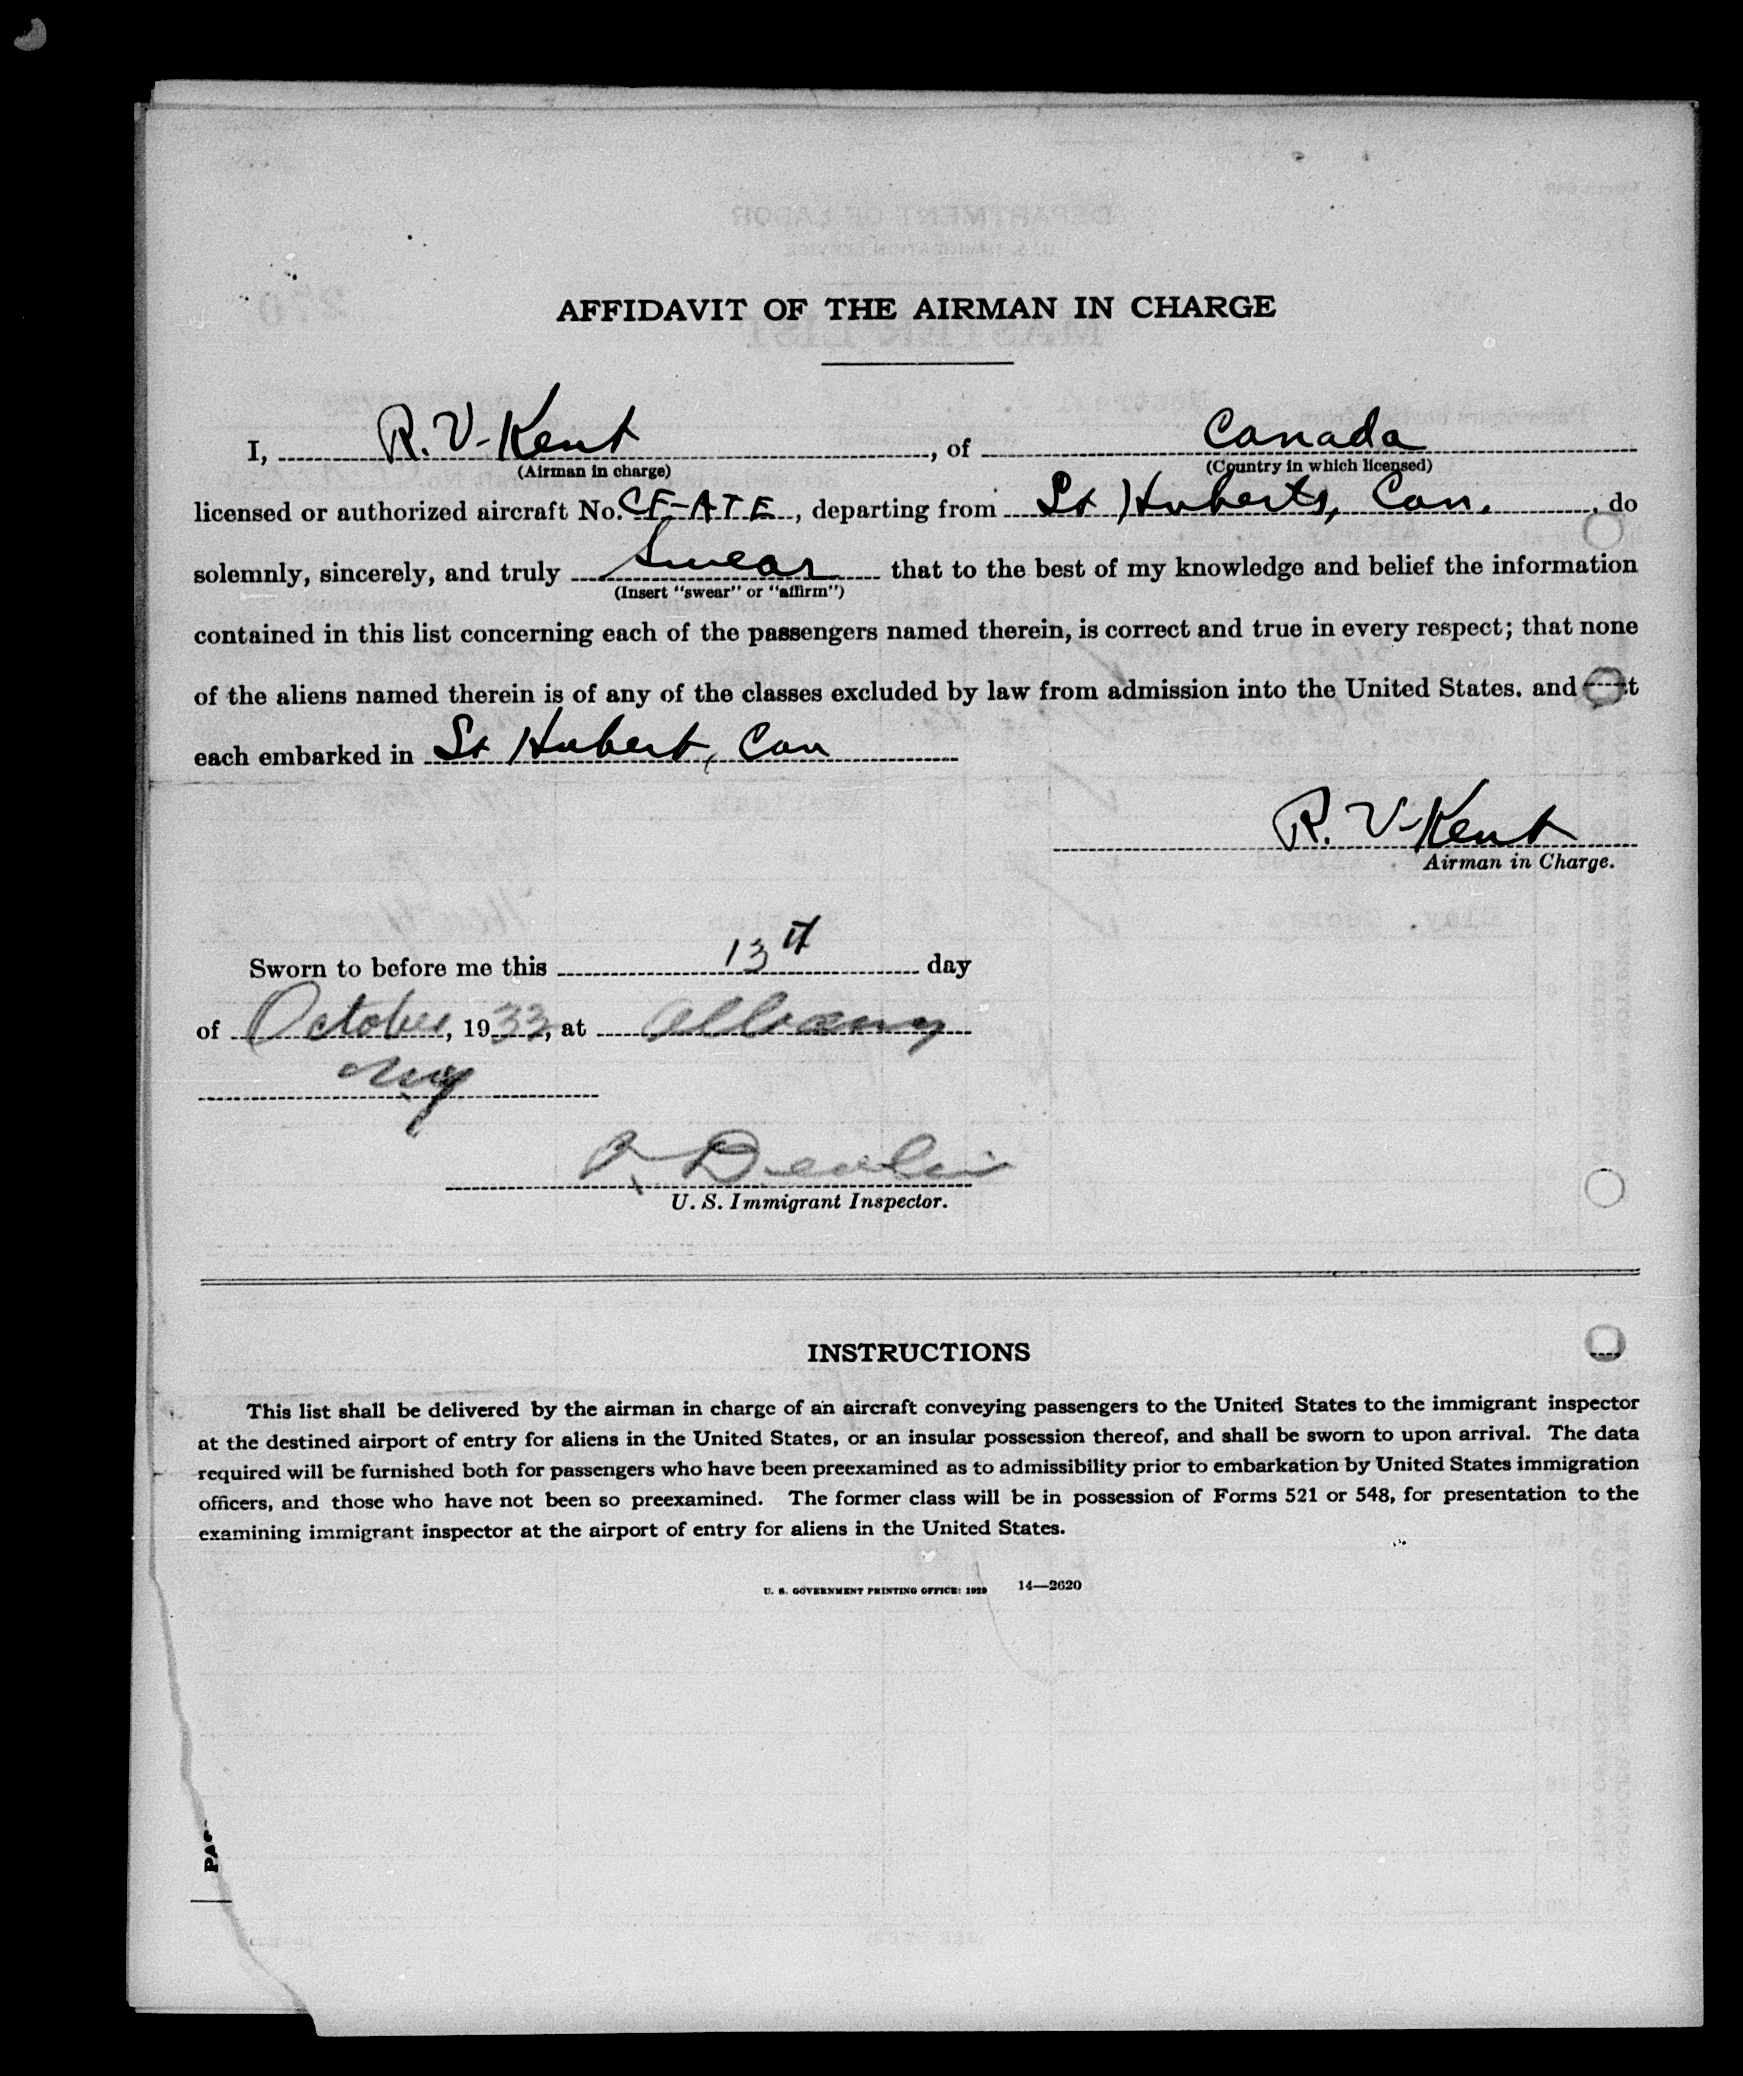 AFFIDAVIT OF THE AIRMAN IN CHARGE
I, R. V. Kent, of Canada
(Airman in charge) (Country in which licensed)
licensed or authorized aircraft No. CF-ATE, departing from St Huberts, Can., do
solemnly, sincerely, and truly Swear that to the best of my knowledge and belief the information
(Insert "swear" or "affirm")
contained in this list concerning each of the passengers named therein, is correct and true in every respect; that none
of the aliens named therein is of any of the classes excluded by law from admission into the United States, and t
each embarked in St Hubert, Can
R. V. Kent
Airman in Charge.
Sworn to before me this 13th day
of October, 1933, at Albany
NY
Devlin
U. S. Immigrant Inspector.
INSTRUCTIONS
This list shall be delivered by the airman in charge of an aircraft conveying passengers to the United States to the immigrant inspector
at the destined airport of entry for aliens in the United States, or an insular possession thereof, and shall be sworn to upon arrival. The data
required will be furnished both for passengers who have been preexamined as to admissibility prior to embarkation by United States immigration
officers, and those who have not been so preexamined. The former class will be in possession of Forms 521 or 548, for presentation to the
examining immigrant inspector at the airport of entry for aliens in the United States.
U. S. GOVERNMENT PRINTING OFFICE: 1929 14—2620